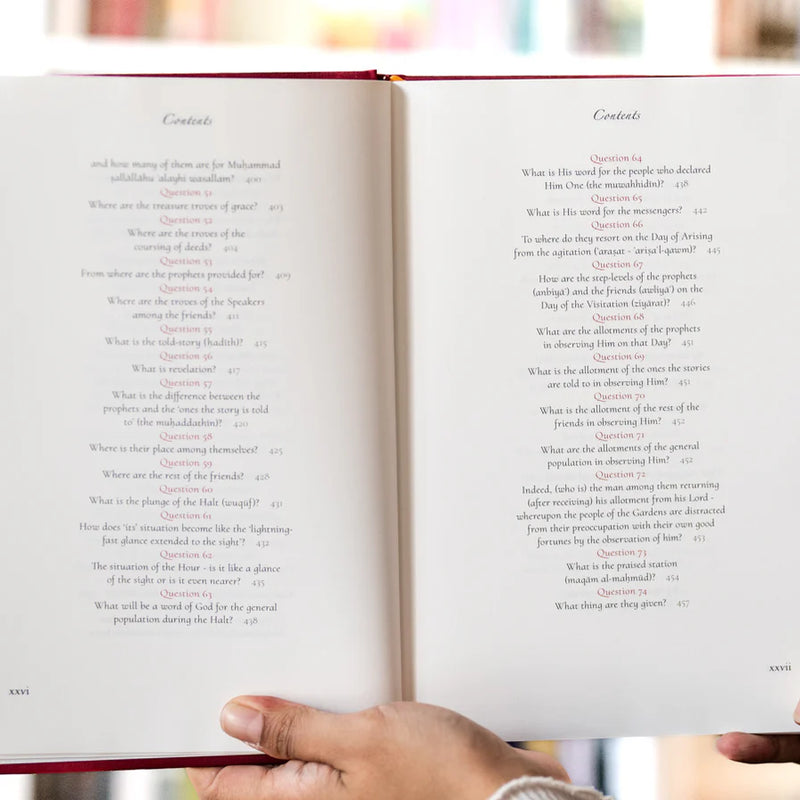 Contents
and how many of them are for Muḥammad
ṣallāllāhu ʿalayhi wasallam? 400
Question 51
Where are the treasure troves of grace? 403
Question 52
Where are the troves of the
coursing of deeds? 404
Question 53
From where are the prophets provided for? 409
Question 54
Where are the troves of the Speakers
among the friends? 411
Question 55
What is the told-story (ḥadīth)? 415
Question 56
What is revelation? 417
Question 57
What is the difference between the
prophets and the ‘ones the story is told
to’ (the muḥaddathīn)? 420
Question 58
Where is their place among themselves? 425
Question 59
Where are the rest of the friends? 428
Question 60
What is the plunge of the Halt (wuqūf)? 431
Question 61
How does ‘its’ situation become like the ‘lightning-
fast glance extended to the sight’? 432
Question 62
The situation of the Hour - is it like a glance
of the sight or is it even nearer? 435
Question 63
What will be a word of God for the general
population during the Halt? 438
xxvi
Contents
Question 64
What is His word for the people who declared
Him One (the muwaḥḥidīn)? 438
Question 65
What is His word for the messengers? 442
Question 66
To where do they resort on the Day of Arising
from the agitation (ʿaraṣat - ʿariṣa’l-qawm)? 445
Question 67
How are the step-levels of the prophets
(anbiyāʾ) and the friends (awliyāʾ) on the
Day of the Visitation (ziyārat)? 446
Question 68
What are the allotments of the prophets
in observing Him on that Day? 451
Question 69
What is the allotment of the ones the stories
are told to in observing Him? 451
Question 70
What is the allotment of the rest of the
friends in observing Him? 452
Question 71
What are the allotments of the general
population in observing Him? 452
Question 72
Indeed, (who is) the man among them returning
(after receiving) his allotment from his Lord -
whereupon the people of the Gardens are distracted
from their preoccupation with their own good
fortunes by the observation of him? 453
Question 73
What is the praised station
(maqām al-maḥmūd)? 454
Question 74
What thing are they given? 457
xxvii